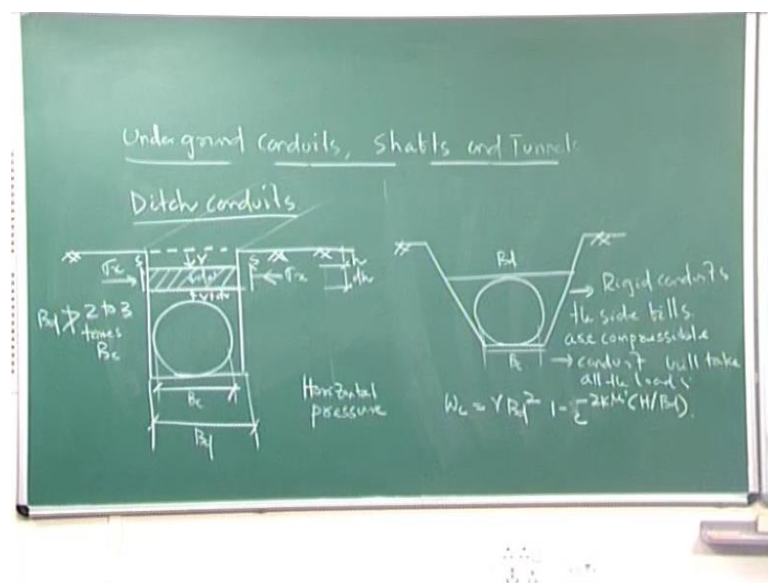 Underground conduits, Shafts and Tunnels
Ditch conduits
S S
V
σx σx
h
dh
V+dv
Bd ≯ 2 to 3
times
Bc
Bc
Bd
Horizontal
pressure
Bd
Bc
→ Rigid conduits
the side fills
are compressible
→ conduit will take
all the loads
Wc = γBd² 1-e^-2Kμ'(H/Bd)